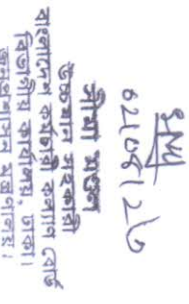 সীমা মন্ডল
উচ্চমান সহকারী
বাংলাদেশ কর্মচারী কল্যাণ বোর্ড
বিভাগীয় কার্যালয়, ঢাকা।
জনপ্রশাসন মন্ত্রণালয়।